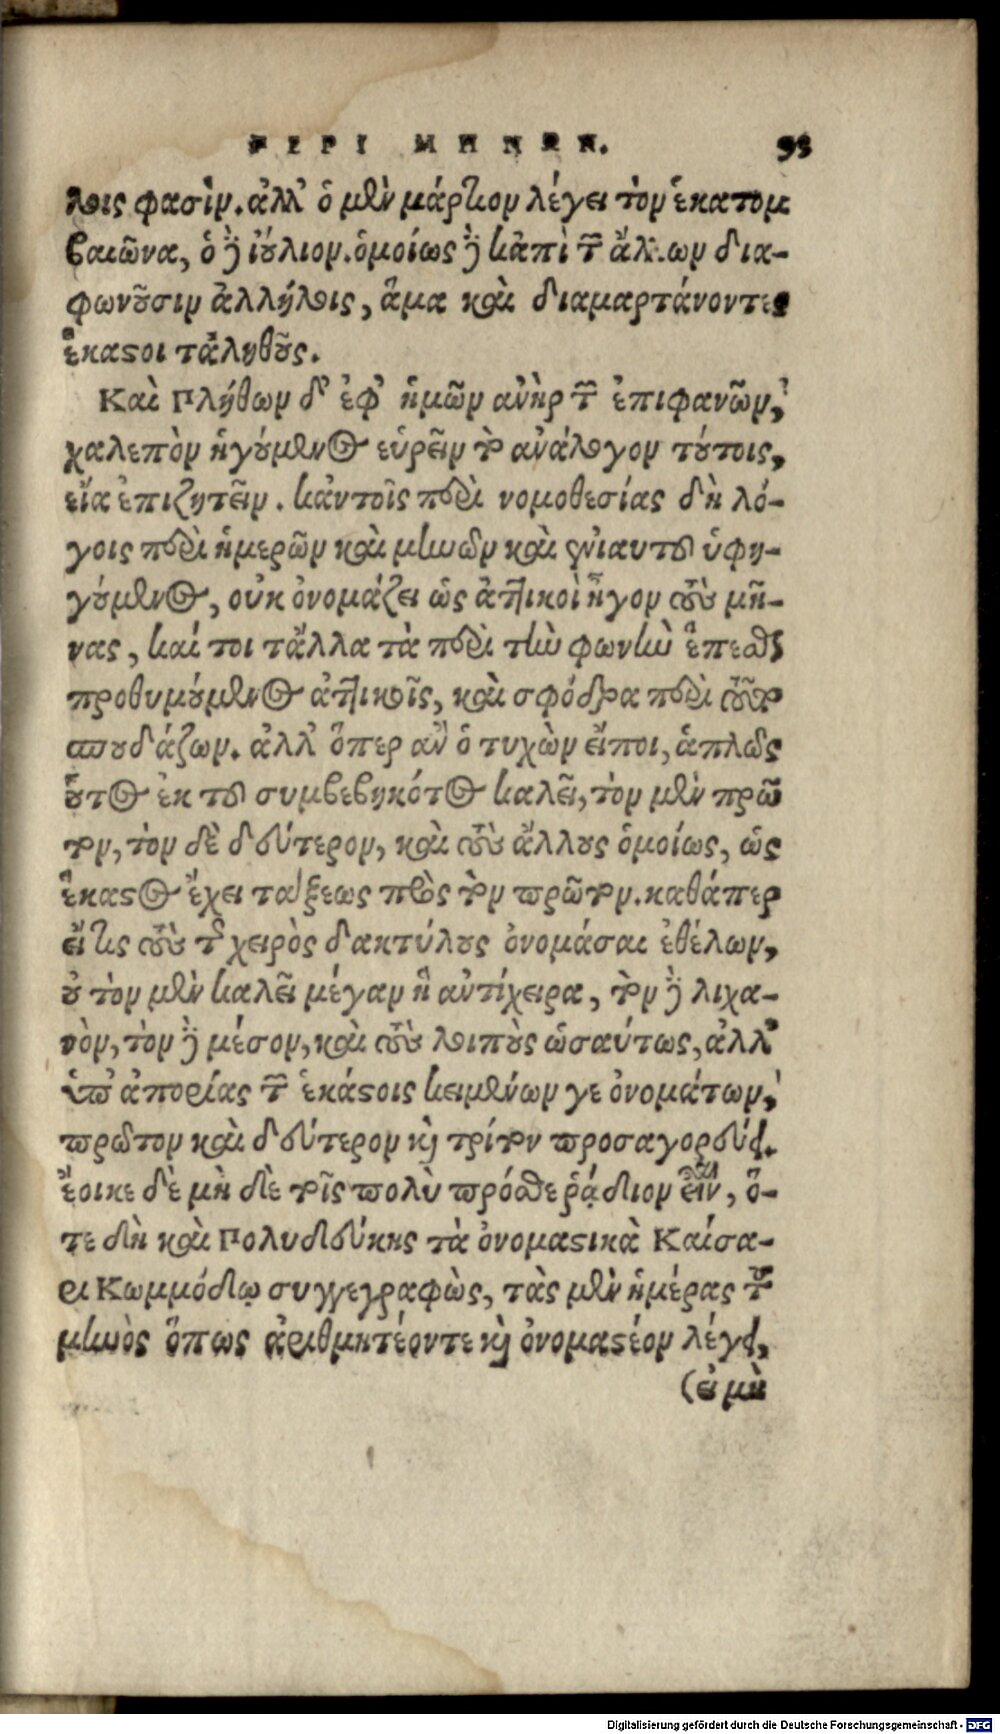 ΠΕΡΙ ΜΗΝΩΝ. 95
λοις φασὶν. ἀλλ' ὁ μὲν μάρτιον λέγει τὸν ἑκατομ
βαιῶνα, ὁ δὲ ἰούλιον. ὁμοίως δὲ κἀπὶ τῶν ἄλλων δια-
φωνοῦσιν ἀλλήλοις, ἅμα καὶ διαμαρτάνοντες
ἕκαστοι τἀληθοῦς.
Καὶ Πλήθων δ' ἐφ' ἡμῶν ἀνὴρ τῶν ἐπιφανῶν,
χαλεπὸν ἡγούμενος εὑρεῖν τὸ ἀνάλογον τούτοις,
εἴα ἐπιζητεῖν. κἀν τοῖς περὶ νομοθεσίας δὴ λό-
γοις περὶ ἡμερῶν καὶ μηνῶν καὶ ἐνιαυτοῦ ὑφη-
γούμενος, οὐκ ὀνομάζει ὡς ἀττικοὶ ἦγον τοὺς μῆ-
νας, καί τοι τἄλλα τὰ περὶ τὴν φωνὴν ἕπεσθαι
προθυμούμενος ἀττικοῖς, καὶ σφόδρα περὶ τοῦτο
σπουδάζων. ἀλλ' ὅπερ ἂν ὁ τυχὼν εἴποι, ἁπλῶς
οὗτος ἐκ τοῦ συμβεβηκότος καλεῖ, τὸν μὲν πρῶ
τον, τὸν δὲ δεύτερον, καὶ τοὺς ἄλλους ὁμοίως, ὡς
ἕκαστος ἔχει τάξεως πρὸς τὸν πρῶτον. καθάπερ
εἴ τις τοὺς τῆς χειρὸς δακτύλους ὀνομάσαι ἐθέλων,
οὐ τὸν μὲν καλεῖ μέγαν ἢ ἀντίχειρα, τὸν δὲ λιχα-
νὸν, τὸν δὲ μέσον, καὶ τοὺς λοιποὺς ὡσαύτως, ἀλλ'
ὑπ' ἀπορίας τῶν ἑκάστοις κειμένων γε ὀνομάτων,
πρῶτον καὶ δεύτερον καὶ τρίτον προσαγορεύει.
ἔοικε δὲ μὴ δὲ τοῖς πολὺ πρόσθε ῥᾴδιον εἶναι, ὅ-
τε δὴ καὶ Πολυδεύκης τὰ ὀνομαστικὰ Καίσα-
ρι Κωμμόδῳ συγγεγραφὼς, τὰς μὲν ἡμέρας τοῦ
μηνὸς ὅπως ἀριθμητέον τε καὶ ὀνομαστέον λέγει,
(εἰ μὴ
Digitalisierung gefördert durch die Deutsche Forschungsgemeinschaft - DFG